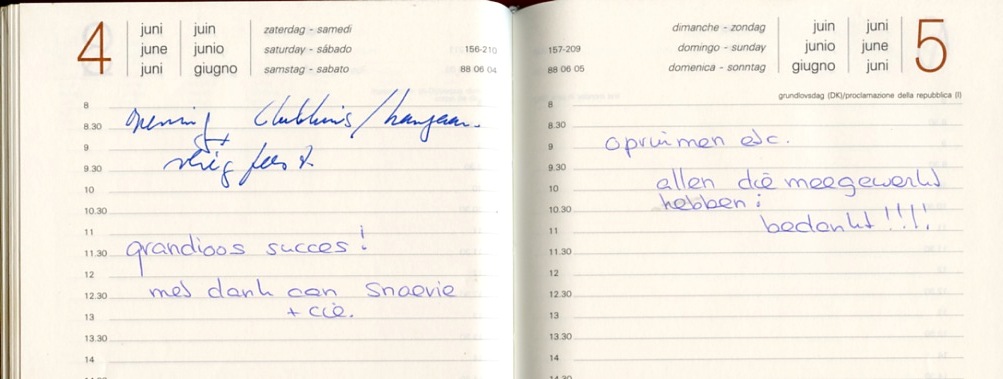 4
juni juin zaterdag - samedi
june junio saturday - sábado 156-210
juni giugno samstag - sabato 88 06 04
8
8.30 opening clubhuis / hangaar
9 +
9.30 vlieg feest
10
10.30
11
11.30 grandioos succes!
12
12.30 met dank aan Snaevie
13 + cie.
13.30
14
14.30
dimanche - zondag juin juni 5
157-209 domingo - sunday junio june
88 06 05 domenica - sonntag giugno juni
grundlovsdag (DK)/proclamazione della repubblica (I)
8
8.30
9 opruimen etc.
9.30
10 allen die meegewerkt
10.30 hebben:
11 bedankt!!!!
11.30
12
12.30
13
13.30
14
14.30